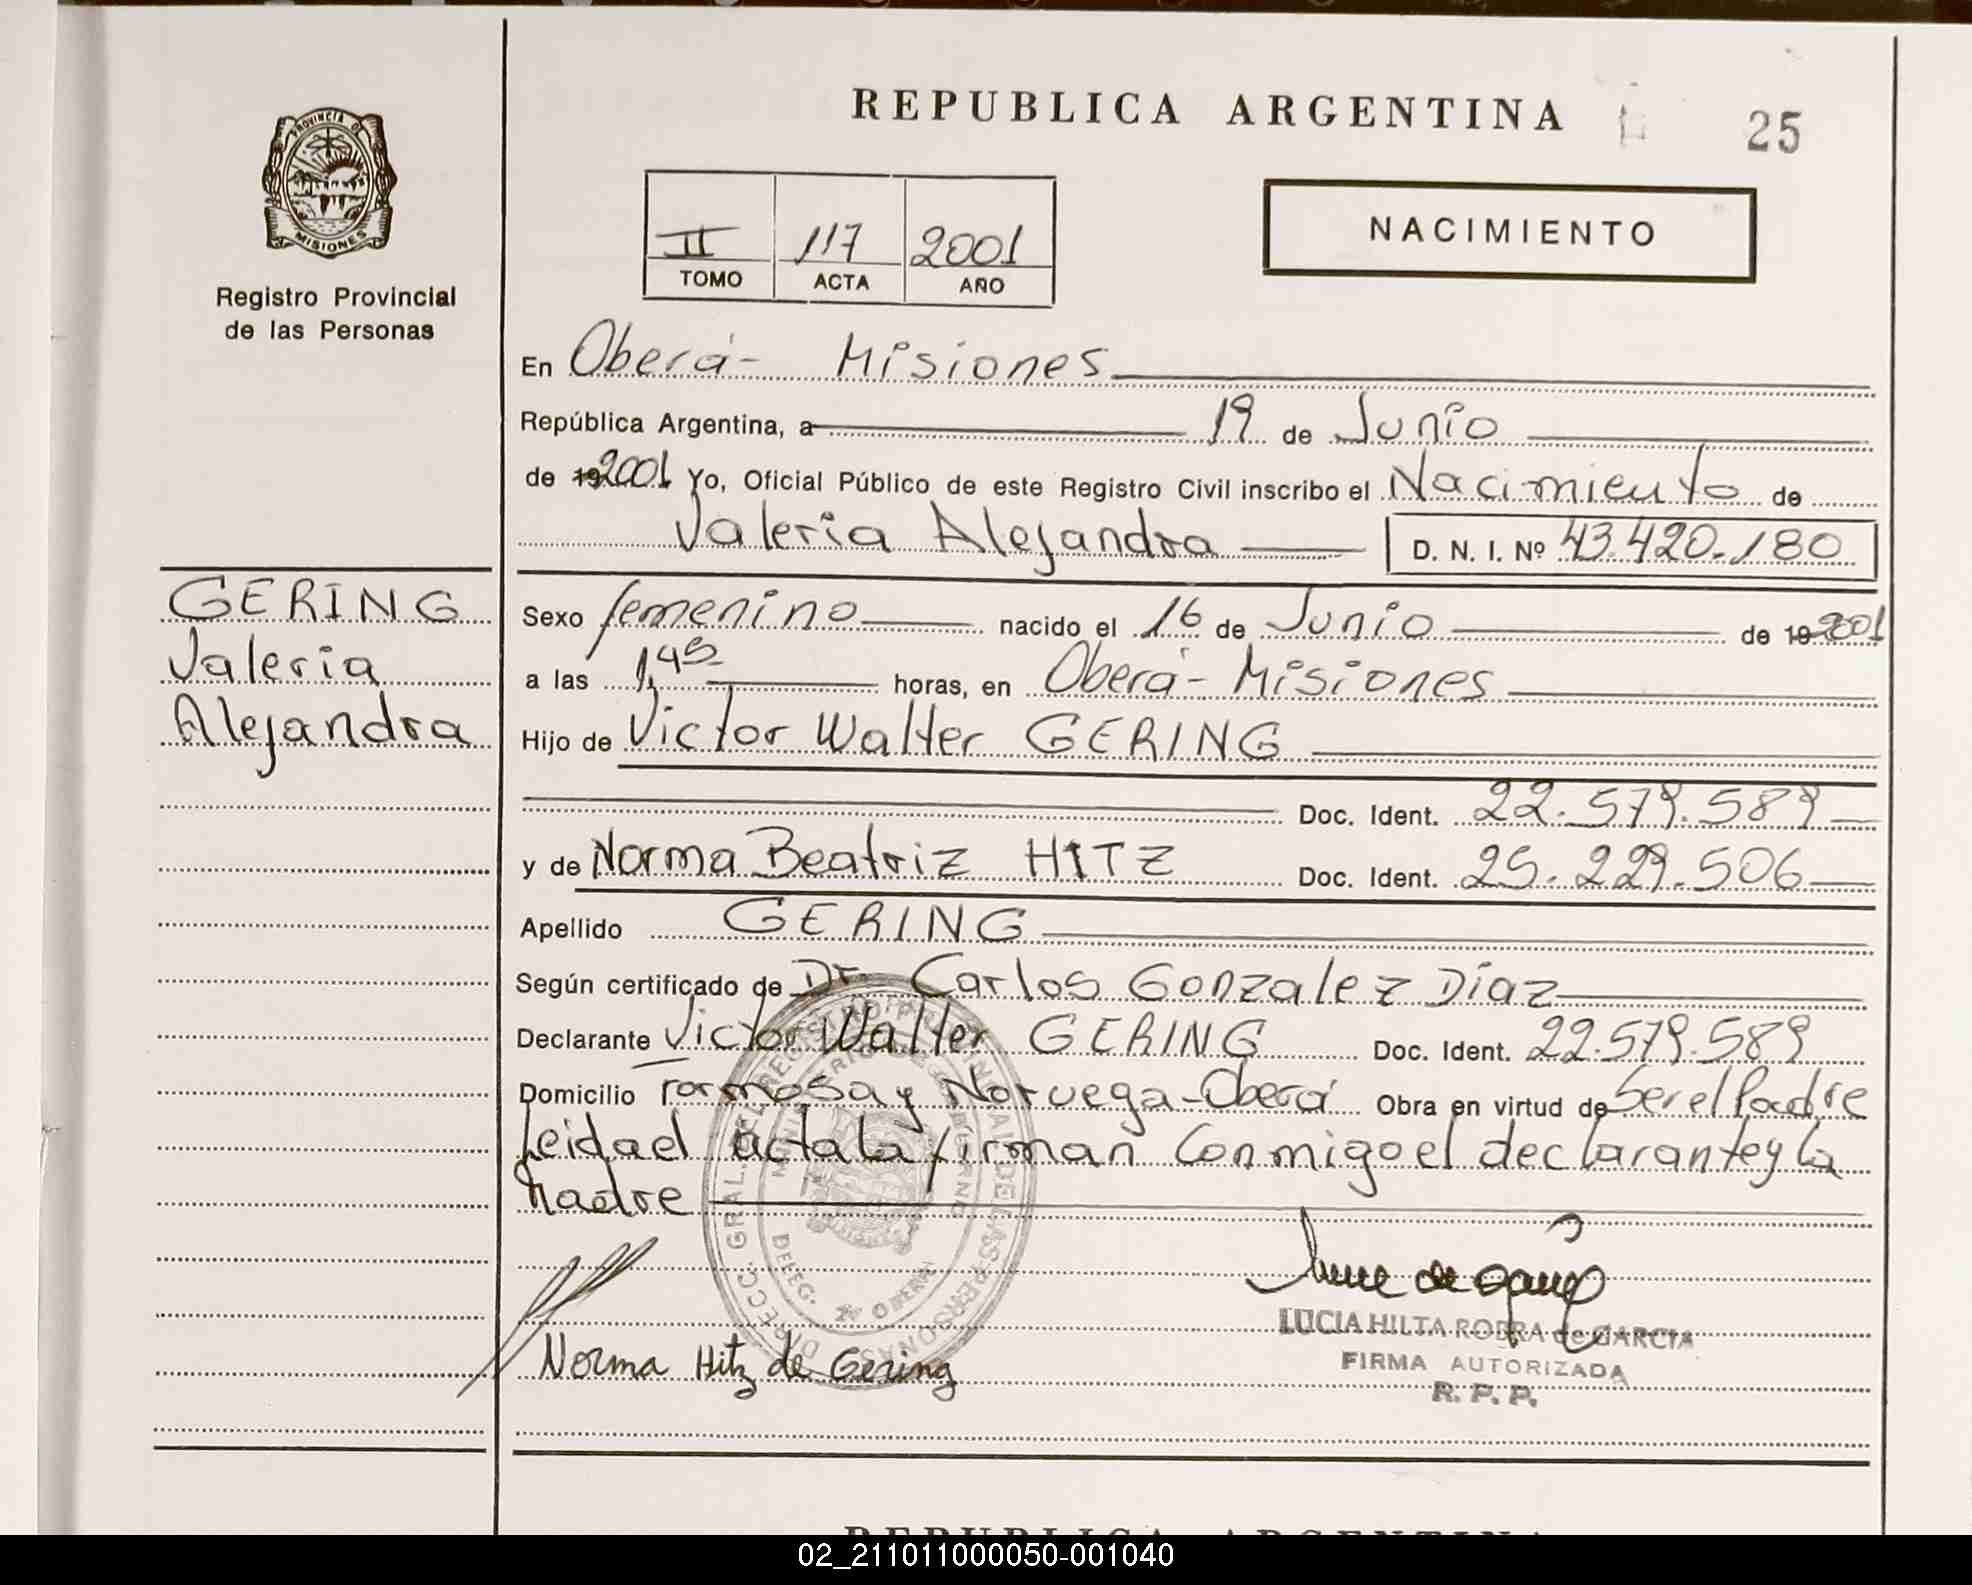 REPUBLICA ARGENTINA
25
PROVINCIA DE
MISIONES
Registro Provincial
de las Personas
II 117 2001
TOMO ACTA AÑO
NACIMIENTO
En Oberá - Misiones
República Argentina, a 19 de Junio
de 19 2001 Yo, Oficial Público de este Registro Civil inscribo el Nacimiento de
Valeria Alejandra D. N. I. Nº 43.420.180
GERING
Valeria
Alejandra
Sexo femenino nacido el 16 de Junio de 19 2001
a las 1,45 horas, en Oberá - Misiones
Hijo de Victor Walter GERING
Doc. Ident. 22.579.589
y de Norma Beatriz HITZ Doc. Ident. 25.229.506
Apellido GERING
Según certificado de Dr. Carlos Gonzalez Diaz
Declarante Victor Walter GERING Doc. Ident. 22.579.589
Domicilio Formosa y Noruega - Oberá Obra en virtud de Ser el Padre
Leida el acta la firman conmigo el declarante y la
Madre
Norma Hitz de Gering
LUCIA HILTA ROBRA de GARCIA
FIRMA AUTORIZADA
R. P. P.
REPUBLICA ARGENTINA
02_211011000050-001040